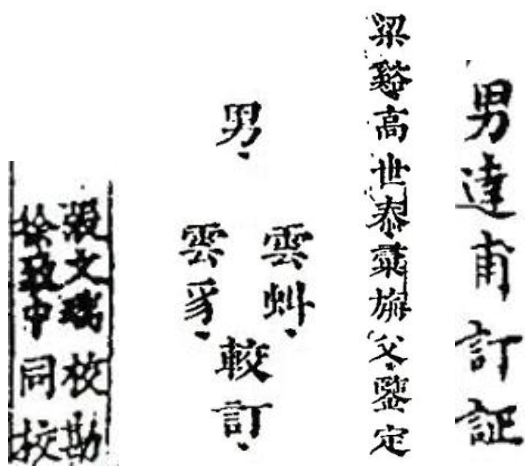 男達甫訂証
梁谿高世泰彙旃父鑒定
男
雲虯
雲豸
較訂
張文瑞校勘
徐致中同挍